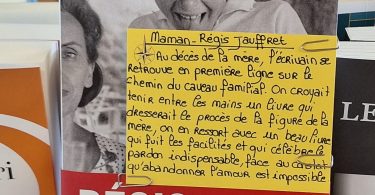 Maman - Régis Jauffret
Au décès de la mère, l'écrivain se
retrouve en première ligne sur le
chemin du caveau familial. On croyait
tenir entre les mains un livre qui
dresserait le procès de la figure de la
mère, on en ressort avec un beau livre
qui fuit les facilités et qui célèbre le
pardon indispensable, face au constat
qu'abandonner l'amour est impossible
ri
LE